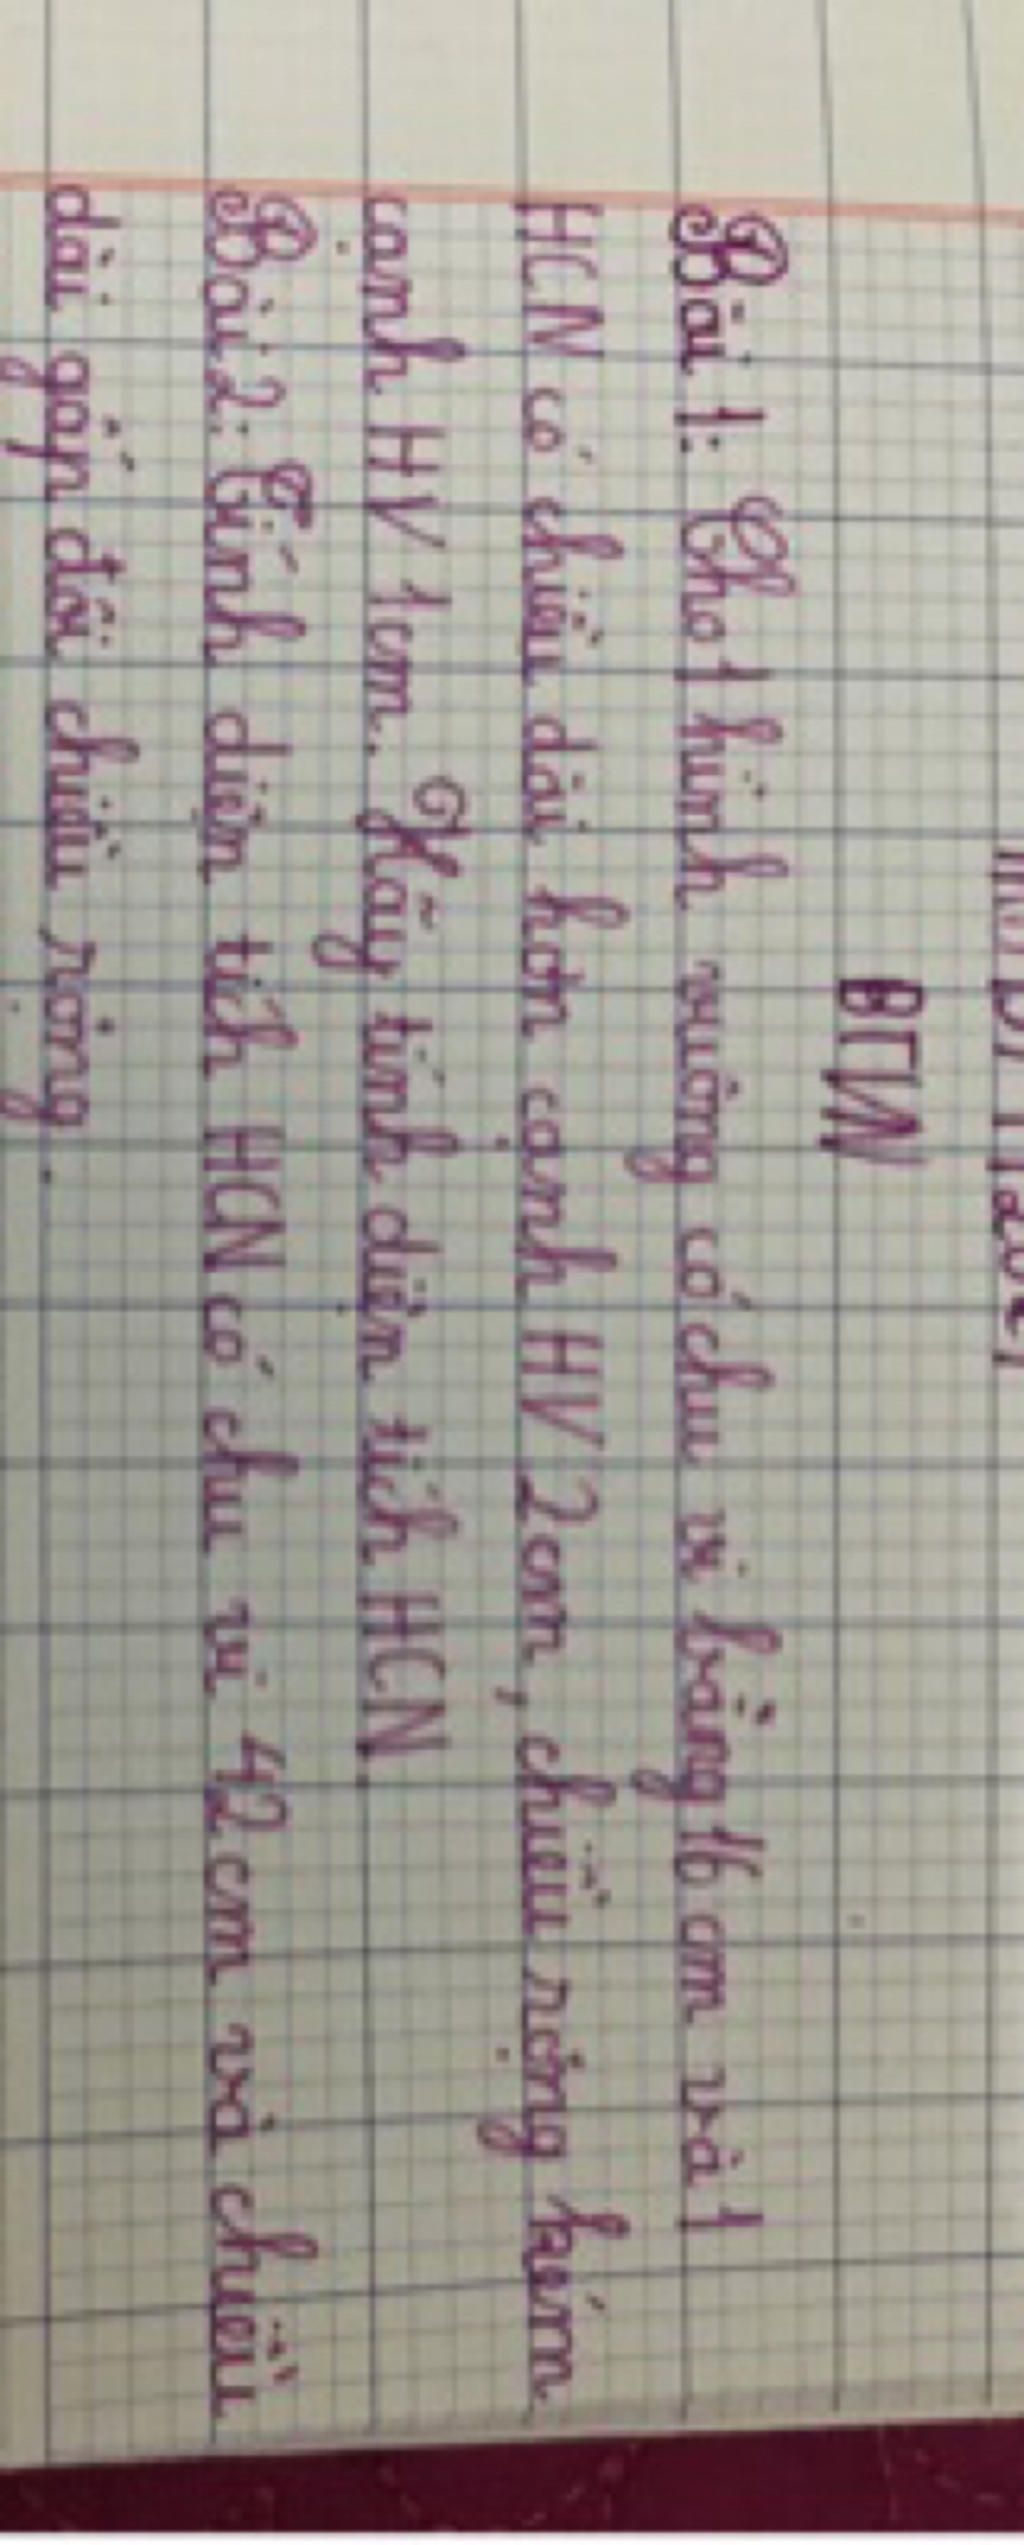 BTVN
Bài 1: Cho 1 hình vuông có chu vi bằng 16 cm và 1
HCN có chiều dài hơn cạnh HV 2cm, chiều rộng kém
cạnh HV 1cm. Hãy tính diện tích HCN
Bài 2: Tính diện tích HCN có chu vi 42cm và chiều
dài gấp đôi chiều rộng.